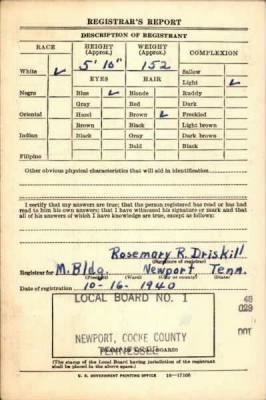 REGISTRAR'S REPORT
DESCRIPTION OF REGISTRANT
RACE HEIGHT (Approx.) WEIGHT (Approx.) COMPLEXION
5' 10" 152
White ✓ Sallow
EYES HAIR Light ✓
Negro Blue ✓ Blonde Ruddy
Gray Red Dark
Oriental Hazel Brown ✓ Freckled
Brown Black Light brown
Indian Black Gray Dark brown
Bald Black
Filipino
Other obvious physical characteristics that will aid in identification
I certify that my answers are true; that the person registered has read or has had
read to him his own answers; that I have witnessed his signature or mark and that
all of his answers of which I have knowledge are true, except as follows:
Rosemary R. Driskill
(Signature of registrar)
Registrar for M. Bldg. Newport Tenn.
(Precinct) (Ward) (City or county) (State)
Date of registration 10-16-1940
LOCAL BOARD NO. 1 48
029
001
NEWPORT, COCKE COUNTY
TENNESSEE
(STAMP OF LOCAL BOARD)
(The stamp of the Local Board having jurisdiction of the registrant
shall be placed in the above space.)
U. S. GOVERNMENT PRINTING OFFICE 16—17105